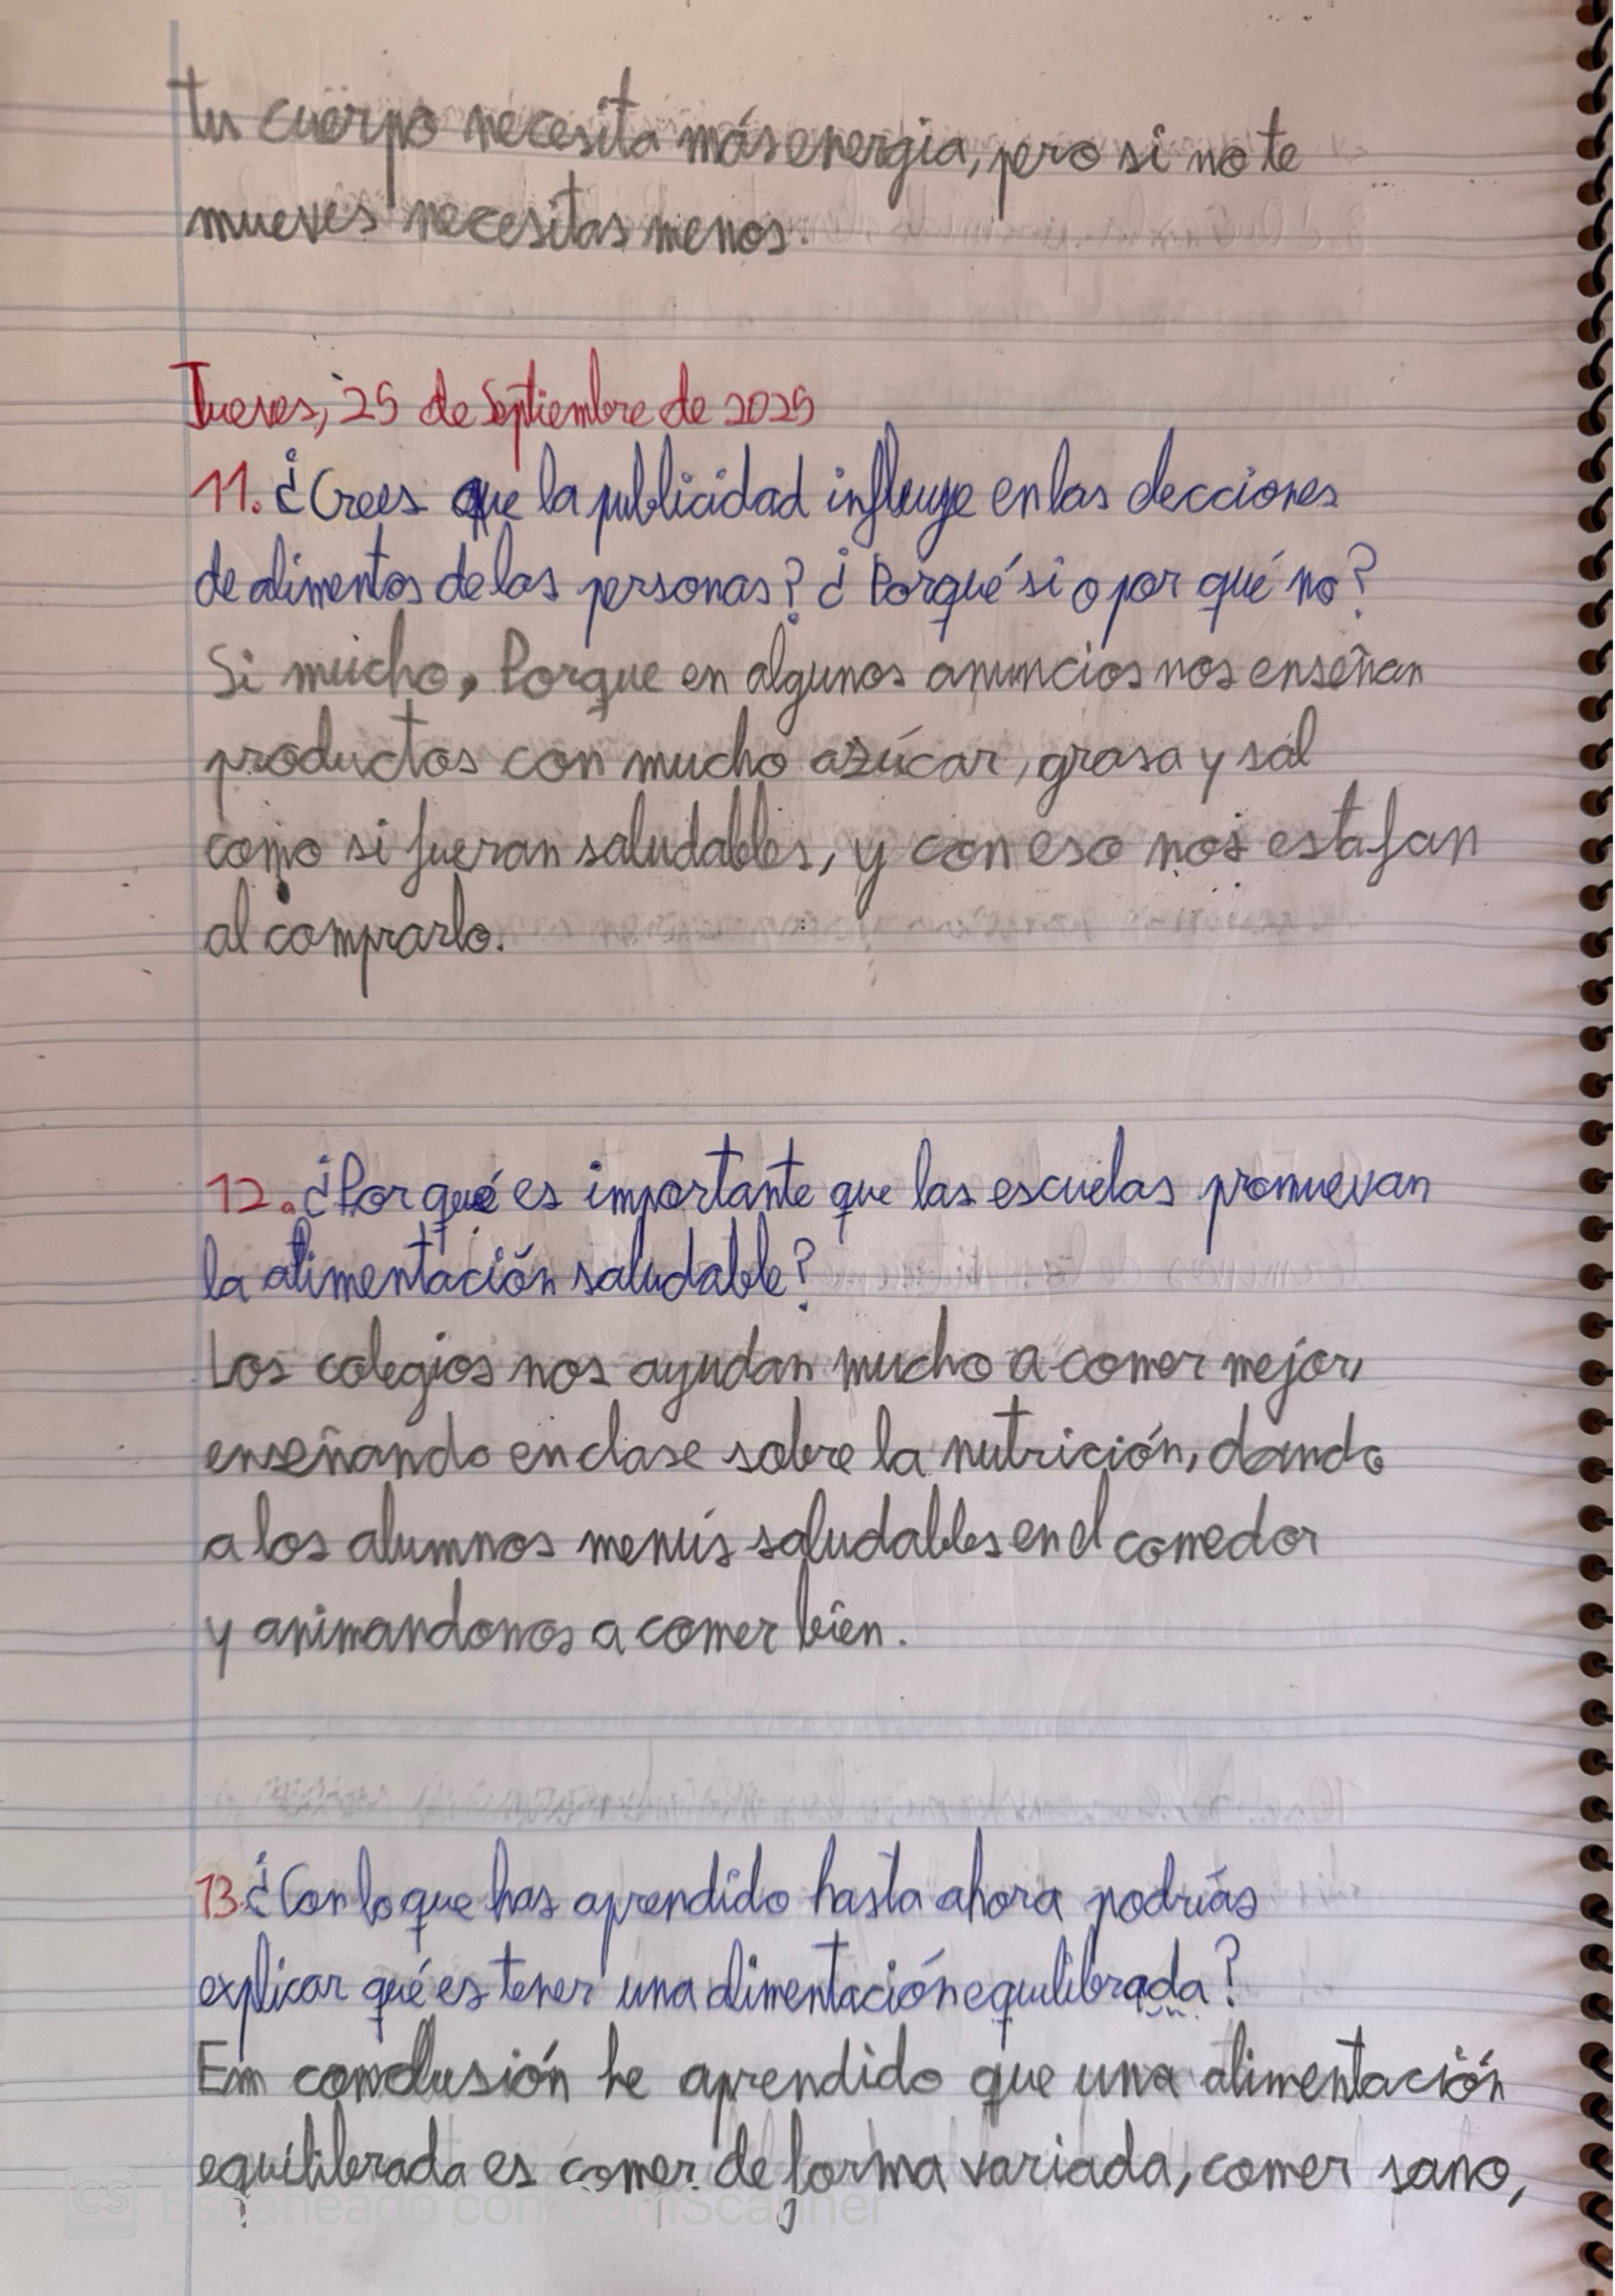 tu cuerpo necesita más energia, pero si no te
mueves necesitas menos.
Jueves, 25 de Septiembre de 2025
11. ¿Crees que la publicidad influye en las elecciones
de alimentos de las personas? ¿Por qué si o por qué no?
Si mucho, Porque en algunos anuncios nos enseñan
productos con mucho azúcar, grasa y sal
como si fueran saludables, y con eso nos estafan
al comprarlo.
12. ¿Por qué es importante que las escuelas promuevan
la alimentación saludable?
Los colegios nos ayudan mucho a comer mejor,
enseñando en clase sobre la nutrición, dando
a los alumnos menús saludables en el comedor
y animandonos a comer bien.
13. ¿Con lo que has aprendido hasta ahora podrías
explicar qué es tener una alimentación equilibrada?
En conclusión he aprendido que una alimentación
equilibrada es comer de forma variada, comer sano,
CS Escaneado con CamScanner